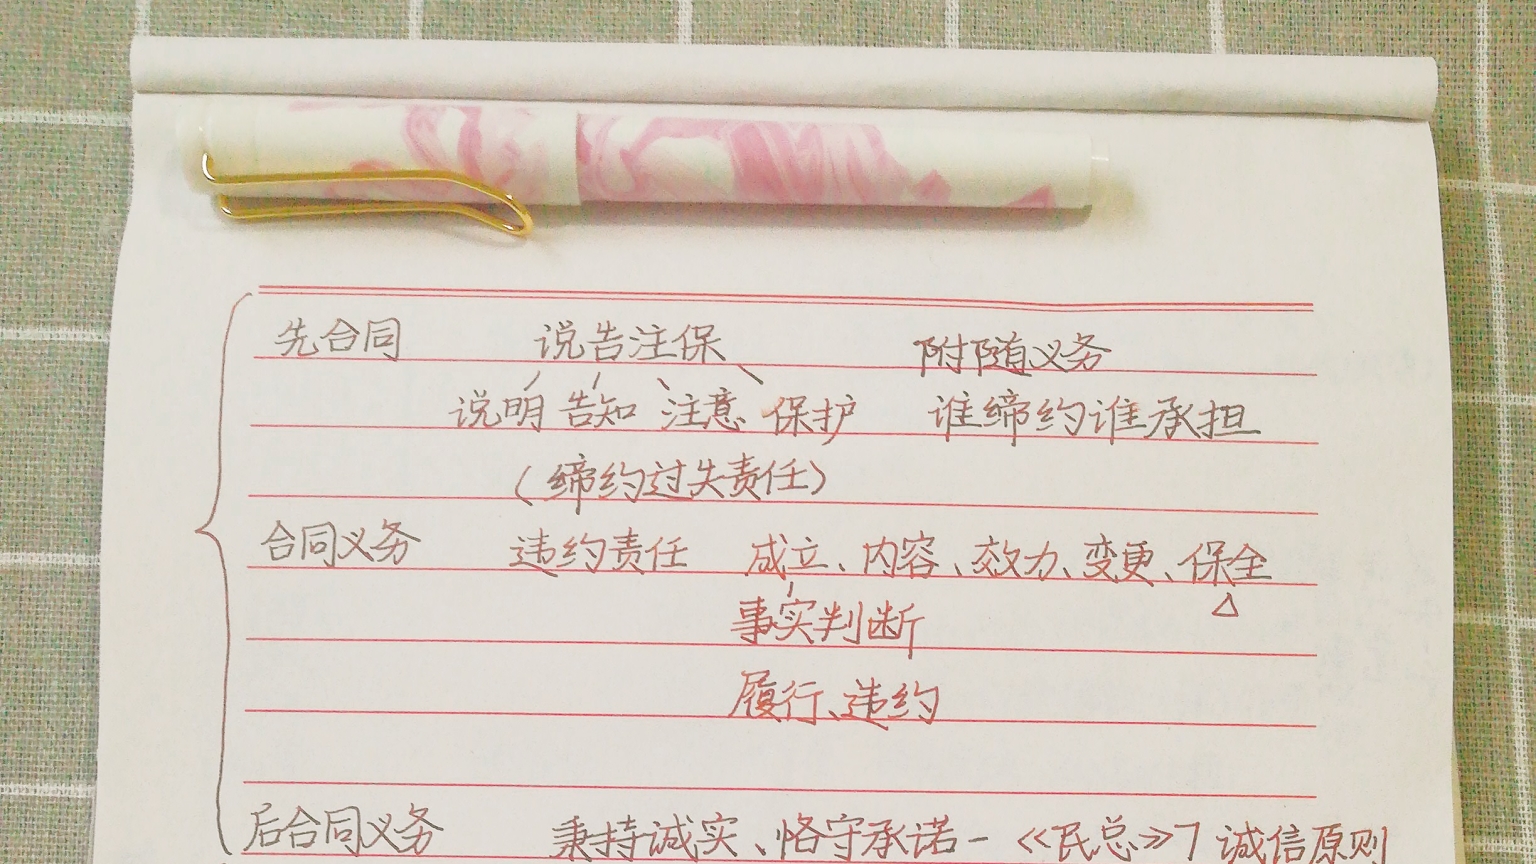 先合同 说告注保 附随义务
说明 告知 注意 保护 谁缔约谁承担
(缔约过失责任)
合同义务 违约责任 成立、内容、效力、变更、保全
事实判断
履行、违约
后合同义务 秉持诚实、恪守承诺-《民总》7 诚信原则